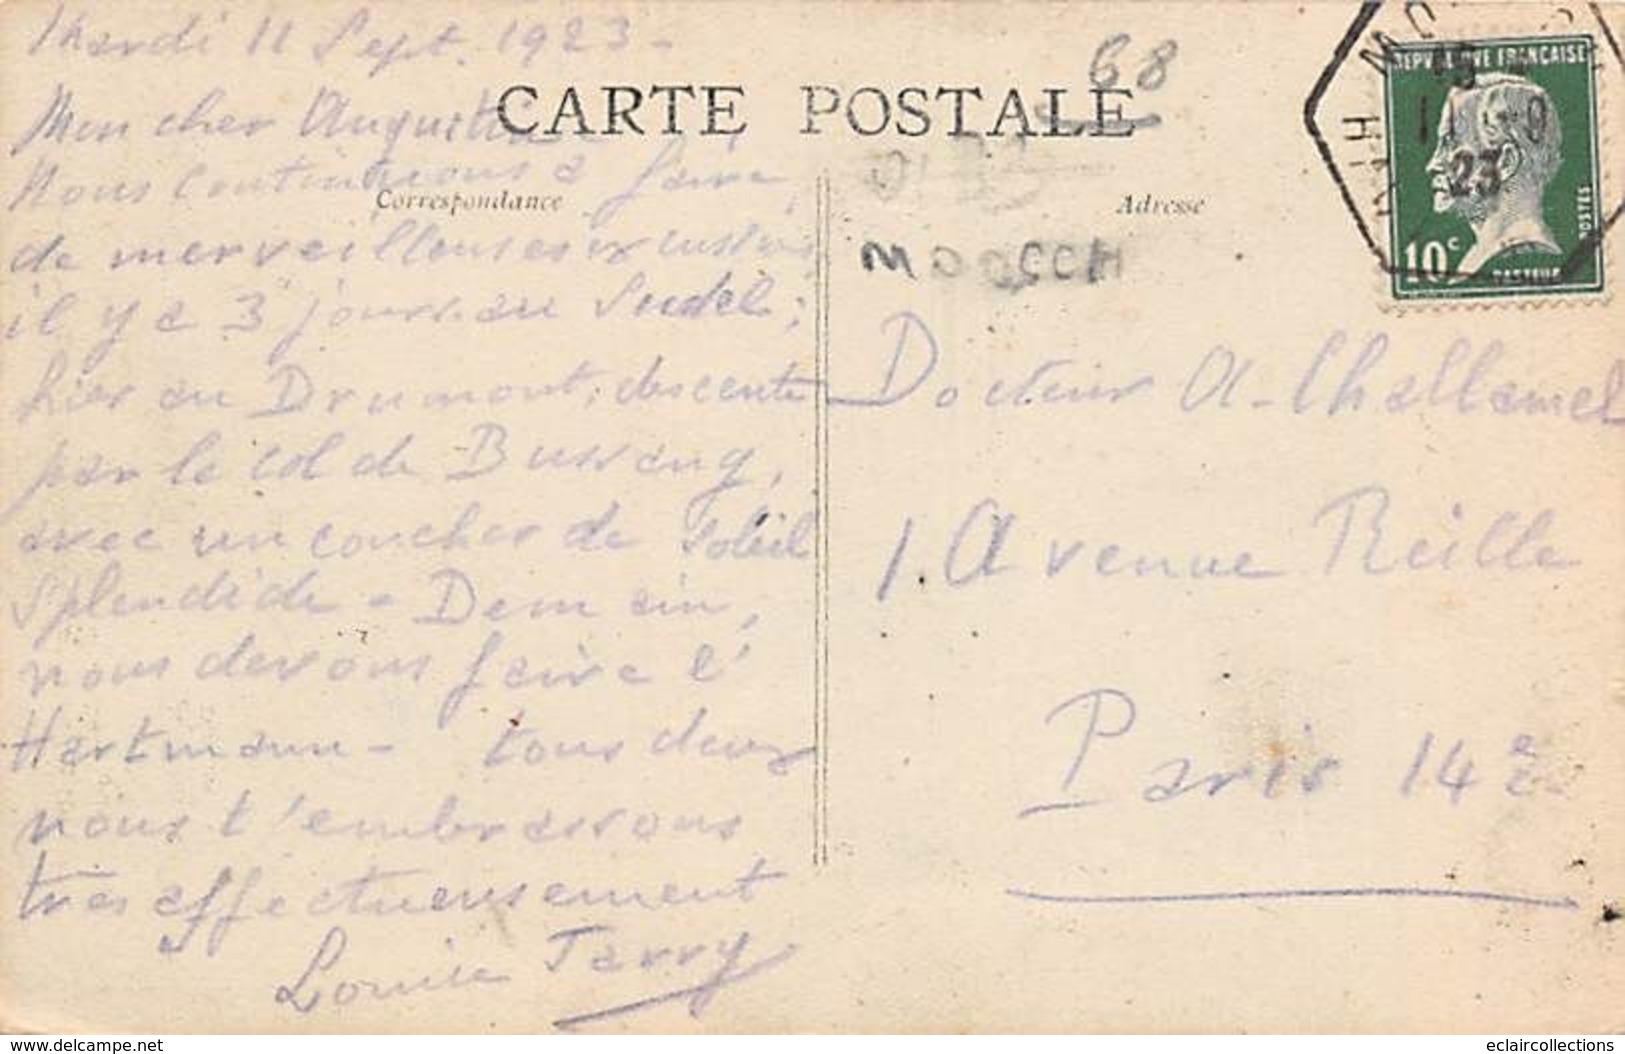 Mardi 11 Sept. 1923 -
Mon cher Augustin
Nous continuons à faire
de merveilleuses excursions
il y a 3 jours au Sudel;
hier au Drumont, descente
par le col de Bussang,
avec un coucher de soleil
splendide - Demain,
nous devons faire l'
Hartmann - tous deux
nous t'embrassons
très affectueusement
Louise Jarry
CARTE POSTALE
Correspondance
Adresse
68
MOOSCH
Docteur A. Challamel
1. Avenue Reille
Paris 14e
REPUBLIQUE FRANÇAISE
POSTES
10c
PASTEUR
23
delcampe.net
eclaircollections